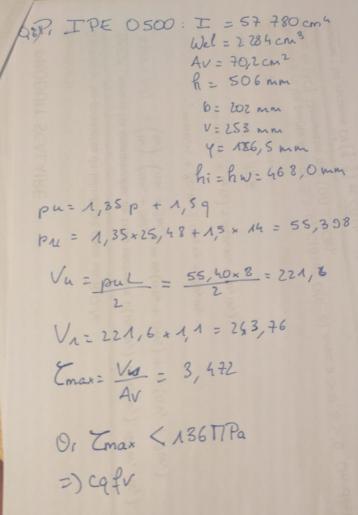 QSP, IPE O 500 : I = 57 780 cm⁴
Wel = 2 284 cm³
Av = 70,2 cm²
h = 506 mm
b = 202 mm
v = 253 mm
y = 186,5 mm
hi = hw = 468,0 mm
pu = 1,35 p + 1,5 q
pu = 1,35 x 25,48 + 1,5 x 14 = 55,398
Vu = puL / 2 = 55,40 x 8 / 2 = 221,6
V1 = 221,6 x 1,1 = 243,76
τmax = Vu / Av = 3,472
Or τmax < 136 MPa
=> cqfv